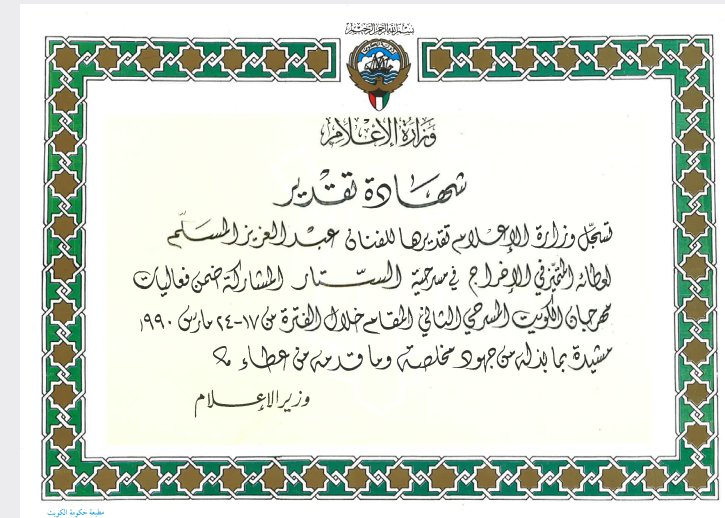 بسم الله الرحمن الرحيم
وزارة الإعلام
شهادة تقدير
تسجل وزارة الإعلام تقديرها للفنان عبد العزيز المسلّم
لعطائه المتميّز في الإخراج في مسرحية الستار المشاركة ضمن فعاليات
مهرجان الكويت المسرحي الثاني المقام خلال الفترة من ١٧-٢٤ مارس ١٩٩٠
مشيدة بما بذله من جهود مخلصة وما قدمه من عطاء
وزير الإعلام
مطبعة حكومة الكويت